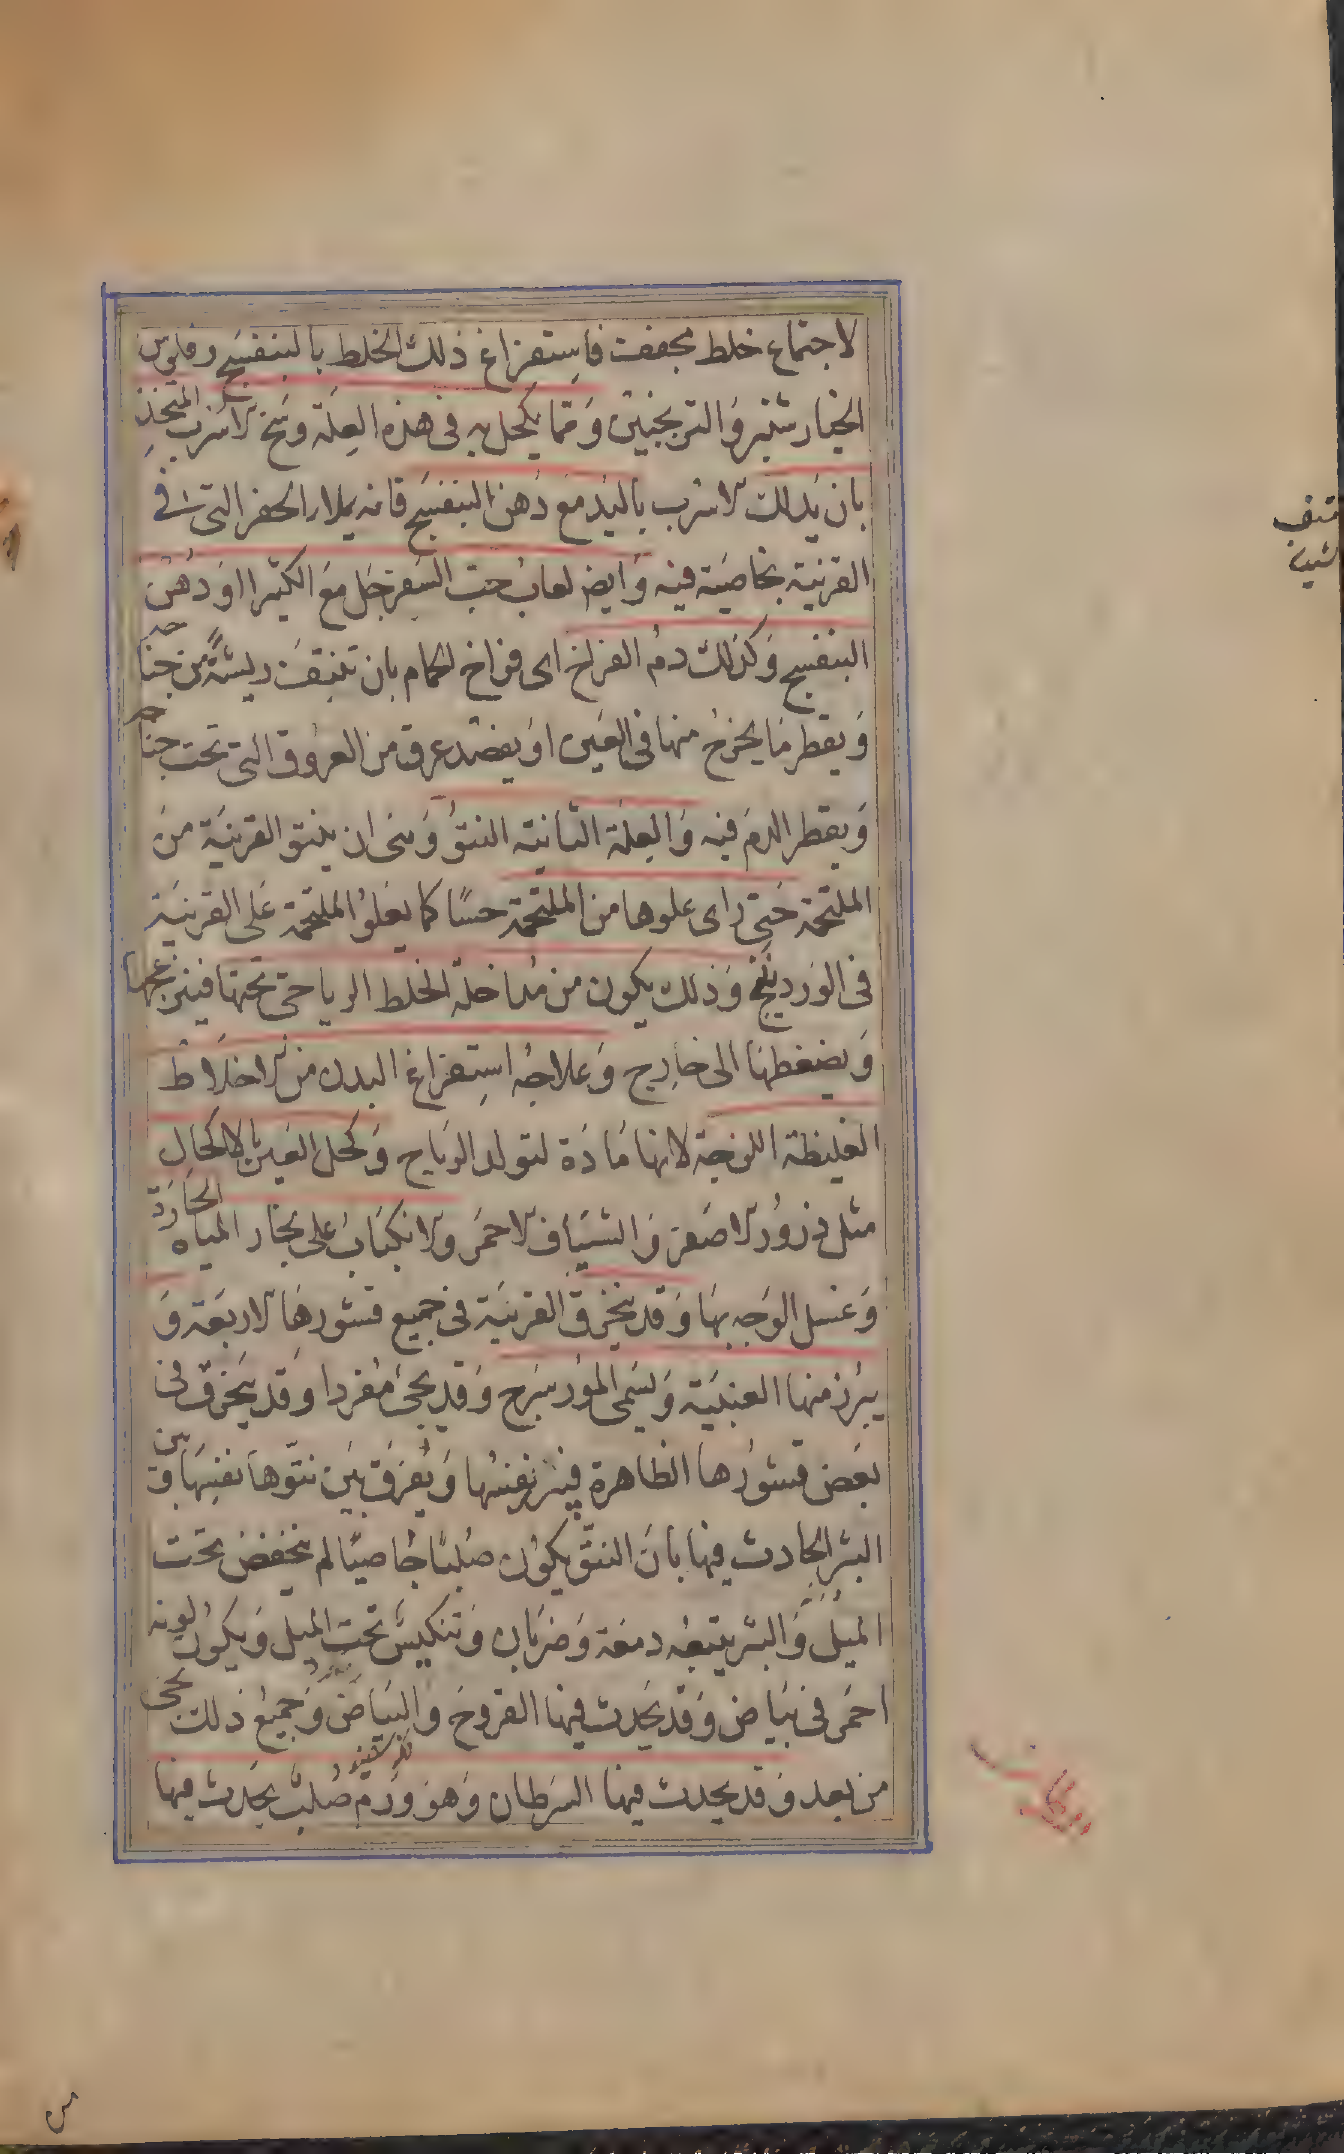 لاجتماع خلط مجفف فاستفراغ ذلك الخلط بالبنفسج وفلوس
الخيارشنبر والترنجبين ومما يكحل به فى هذه العلة وسخ الاسرب المتخذ
بان يدلك الاسرب باليد مع دهن البنفسج فانه يملأ الحفر التى فى
القرنية بخاصية فيه وايض لعاب حب السفرجل مع الكثيرا او دهن
البنفسج وكذلك دم الفراخ اى فراخ الحمام بان تنتف ريشة من جناحه
ويقطر ما يخرج منها فى العين او يفصد عرق من العروق التى تحت جناحه
ويقطر الدم فيه والعلة الثانية النتو وهى ان ينتو القرنية من
الملتحمة حتى راى علوها من الملتحمة حسا كما يعلو الملتحمة على القرنية
فى الوردينج وذلك يكون من مداخلة الخلط الرياحى تحتها فيزعجها
ويضغطها الى خارج وعلاجه استفراغ البدن من الاخلاط
الغليظة اللزجة لانها مادة لتولد الرياح وكحل العين بالاكحال
مثل ذرور الاصفر والشياف الاحمر والانكباب على بخار المياه الحارة
وغسل الوجه بها وقد ينخرق القرنية فى جميع قشورها الاربعة و
يبرز منها العنبية ويسمى المورسرج وقد يجئ مفردا وقد ينخرق فى
بعض قشورها الظاهرة فينز نفسها ويفرق بين نتوها نفسها وبين
البثر الحادث فيها بان النتو يكون صلبا جاصيا لم ينخفض تحت
الميل والبثر يتبعه دمعة وضربان وتنكبس تحت الميل ويكون لونه
احمر فى بياض وقد يحدث فيها القروح والبياض وجميع ذلك يجئ
من بعد وقد يحدث فيها السرطان وهو ورم صلب يحدث فيها